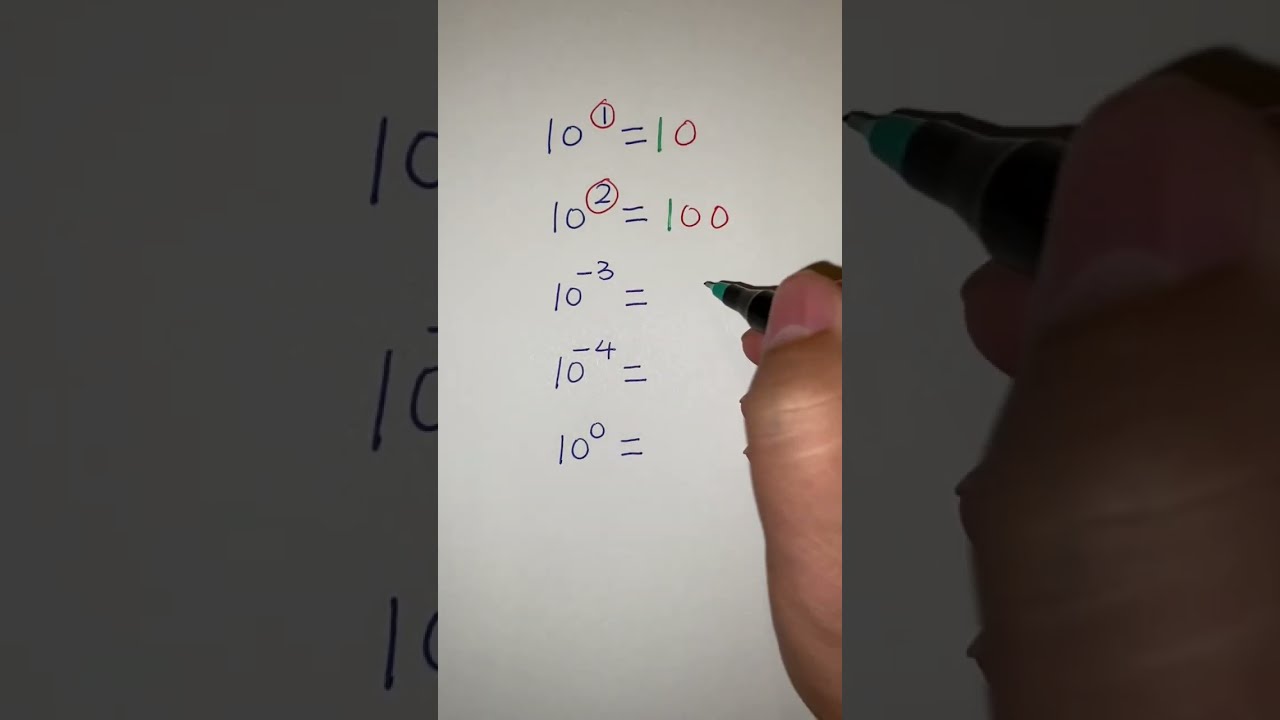 10¹ = 10
10² = 100
10⁻³ =
10⁻⁴ =
10⁰ =